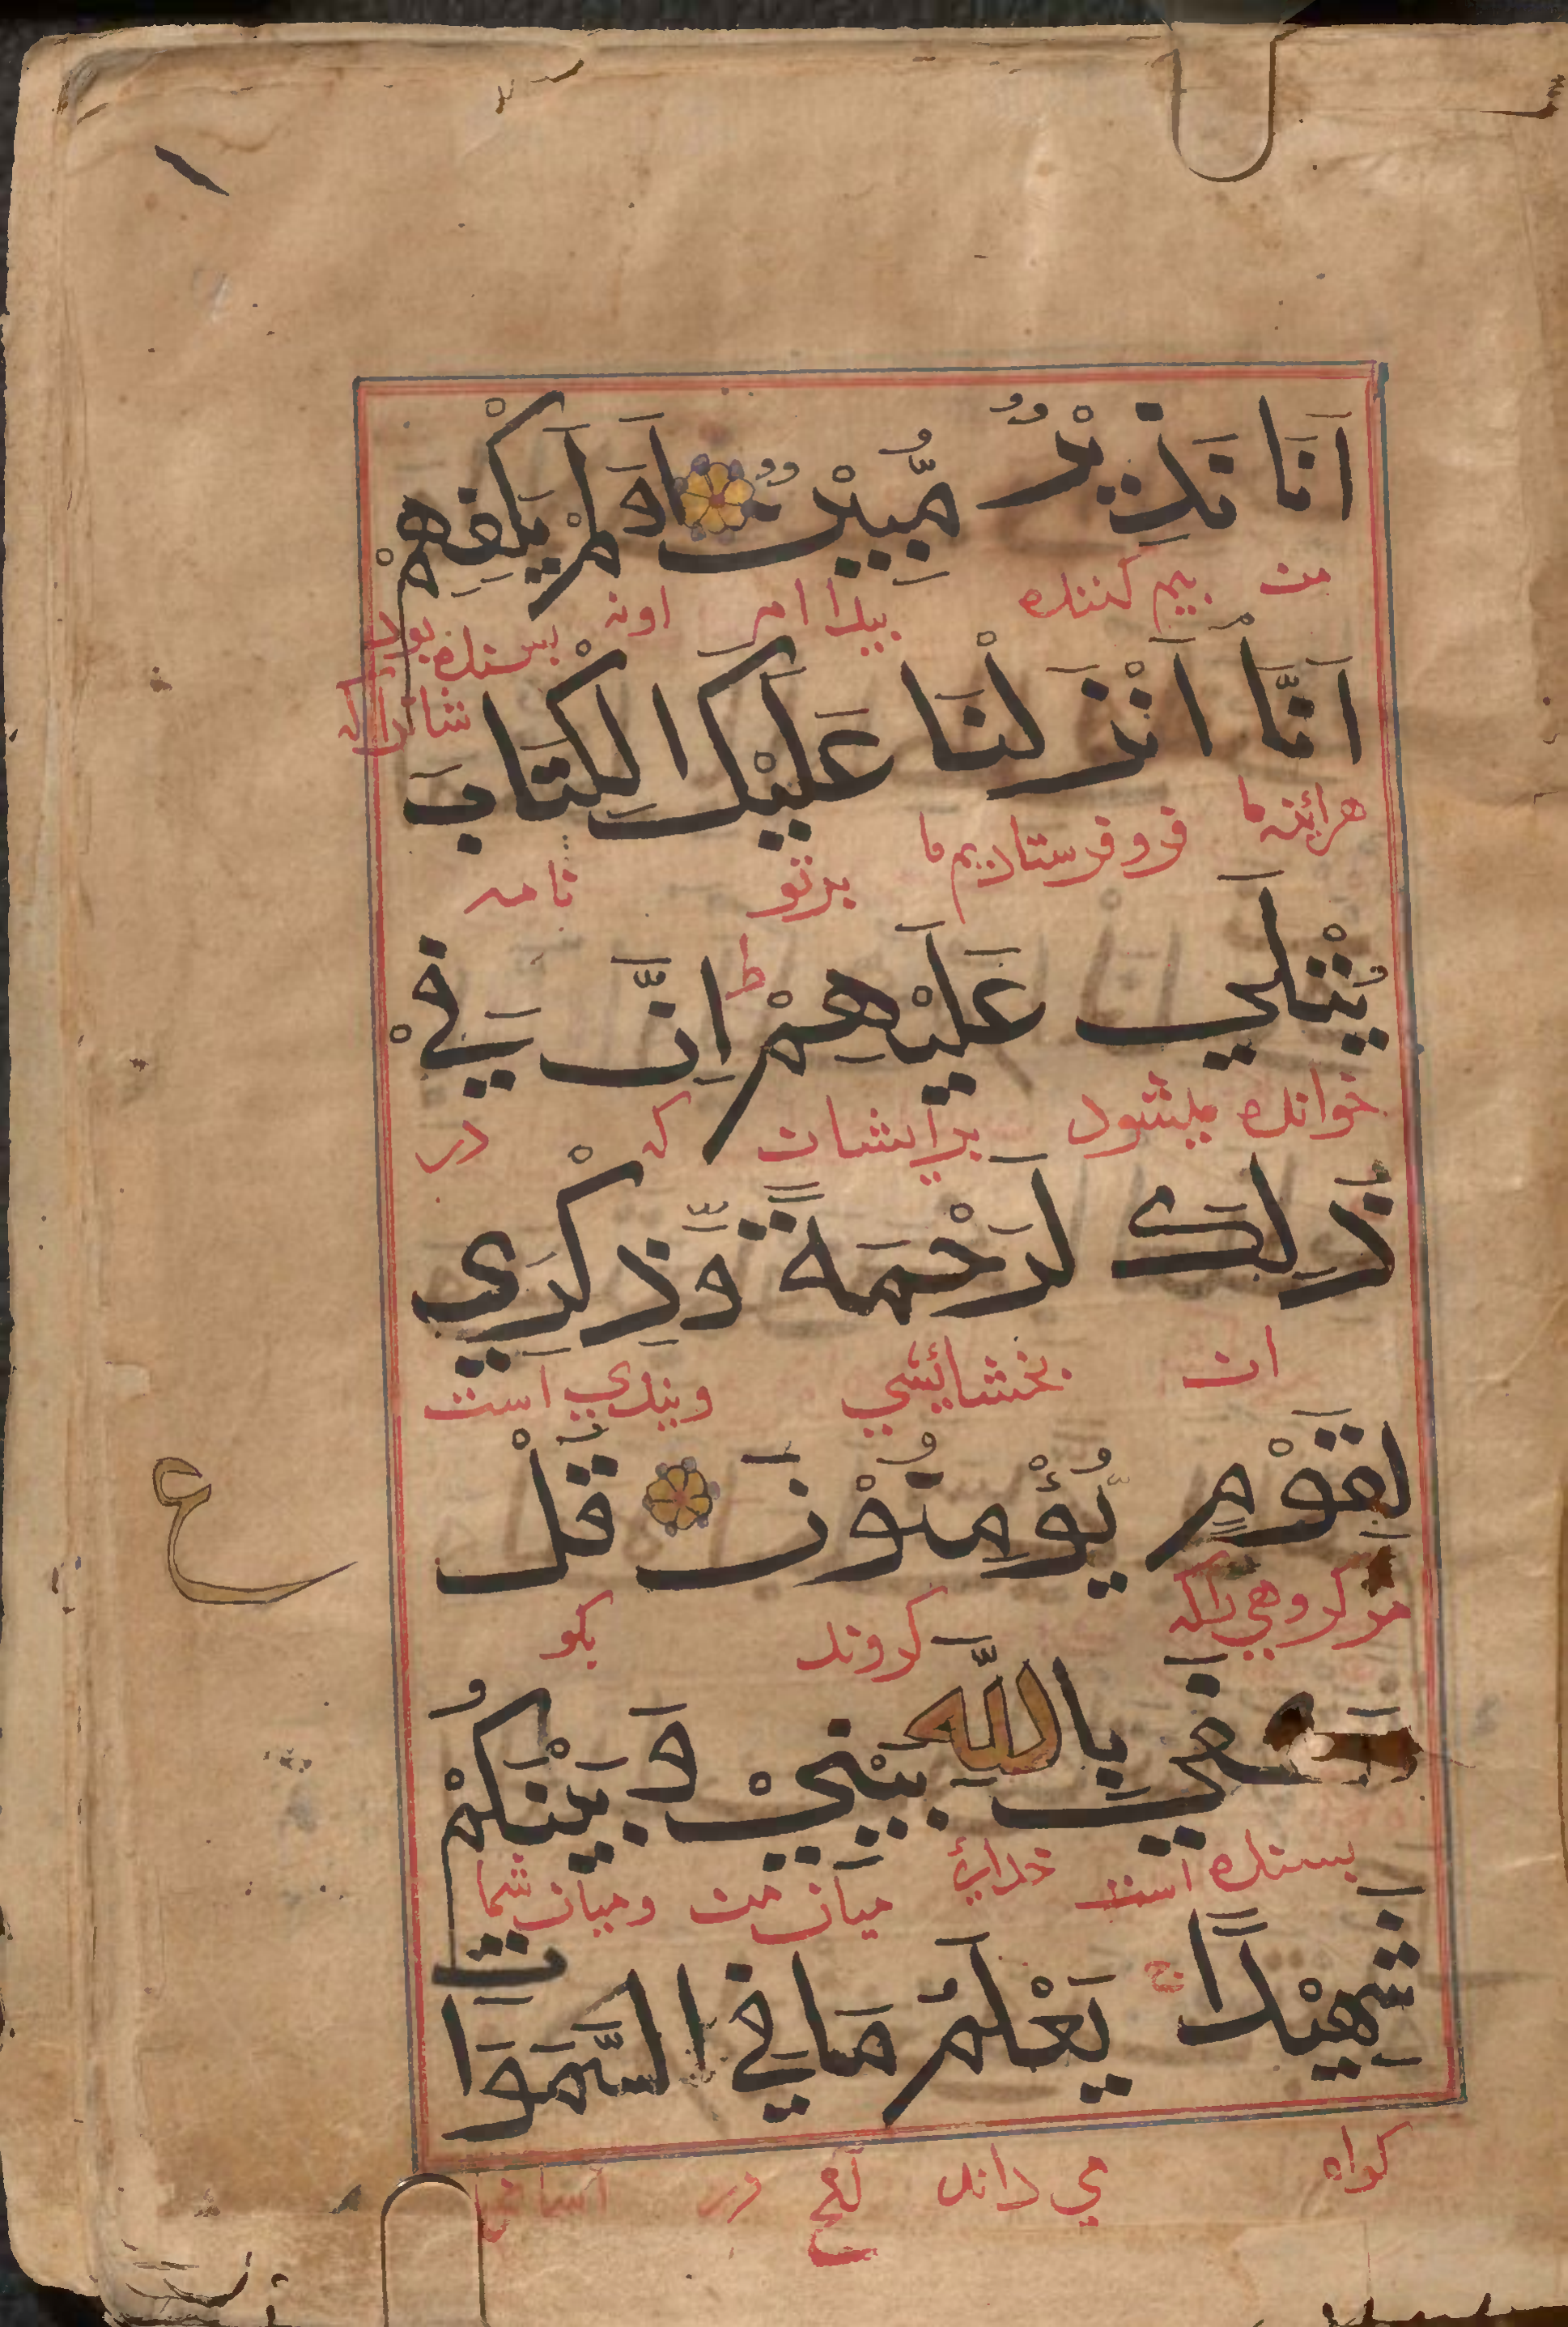 اَنَا نَذِيْرٌ مُّبِيْنٌ اَوَلَمْ يَكْفِهِمْ
من بيم كننده بيدا ام اونه بسنده بود
شانرا كه
اَنَّا اَنْزَلْنَا عَلَيْكَ الْكِتَابَ
هرائنه ما فروفرستاديم ما برتو نامه
يُتْلٰي عَلَيْهِمْ ط اِنَّ فِيْ
خوانده ميشود برايشان كه در
ذٰلِكَ لَرَحْمَةً وَّذِكْرٰي
ان بخشائيشي وپندي است
لِقَوْمٍ يُّؤْمِنُوْنَ قُلْ
مر كروهي راكه كروند بكو
ع
كَفٰي بِاللّٰهِ بَيْنِيْ وَبَيْنَكُمْ
بسنده است خداي ميان من وميان شما
شَهِيْدًا ج يَعْلَمُ مَا فِي السَّمٰوَاتِ
كواه مي داند آنچ در